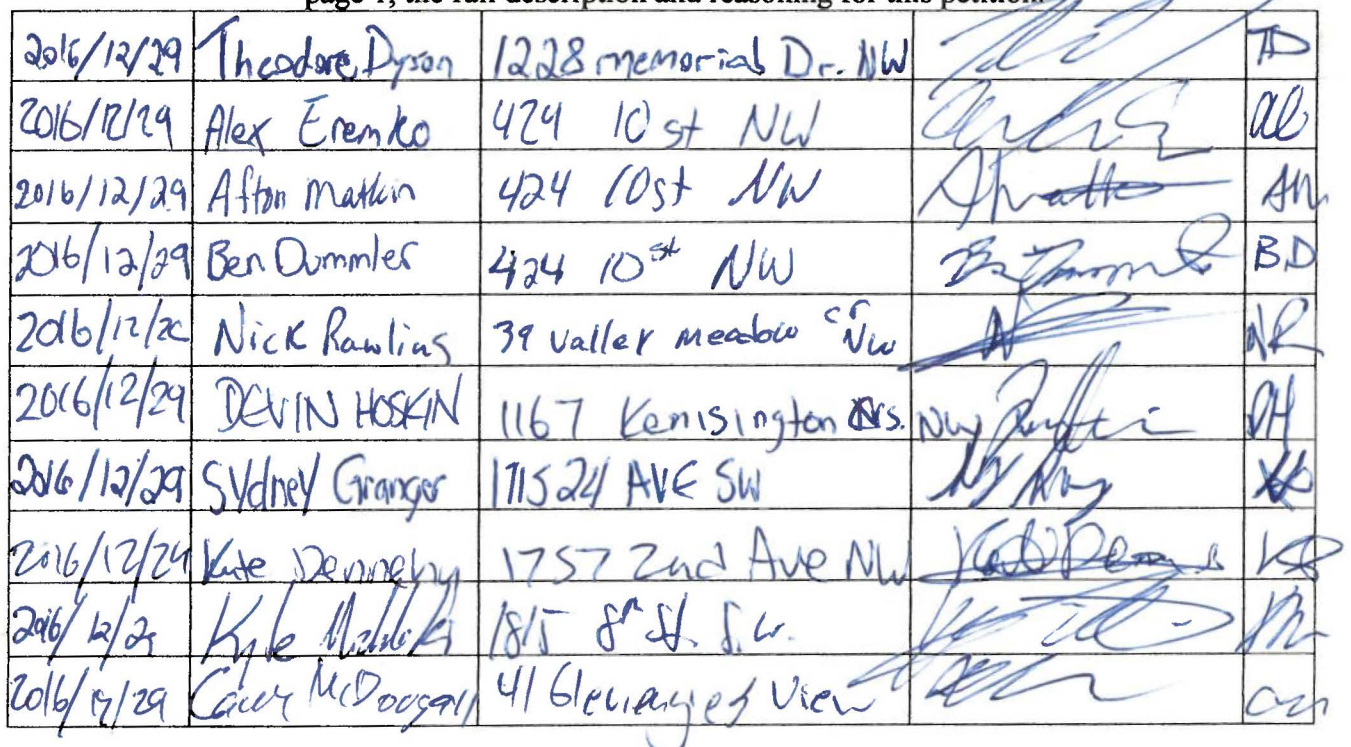 page 1, the full description and reasoning for this petition.
2016/12/29 Theodore Dyson 1228 memorial Dr. NW TD
2016/12/29 Alex Eremko 424 10 st NW ae
2016/12/29 Afton Matkin 424 10st NW AM
2016/12/29 Ben Dummler 424 10st NW BD
2016/12/2 Nick Rawlins 39 valley meadow cr NW N NR
2016/12/29 DEVIN HOSKIN 1167 Kenisington Crs. NW DH
2016/12/29 Sydney Granger 1715 24 AVE SW
2016/12/29 Kate Dennehy 1757 2nd Ave NW KD
2016/12/29 Kyle 1815 8th St. S.W.
2016/12/29 McDougall 41 View